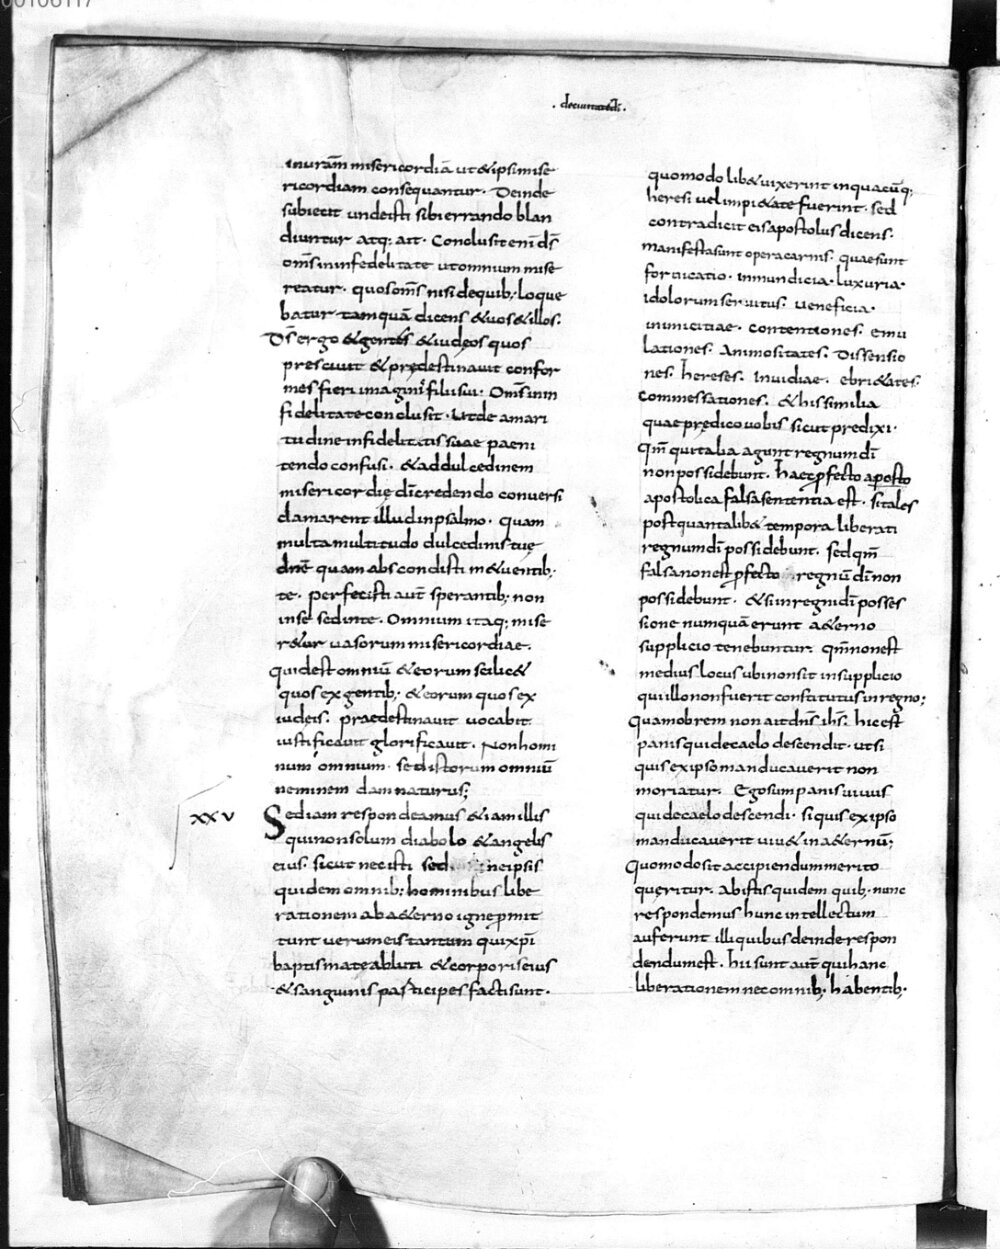 00106117
. deciuitatedi .
inuram̅ misericordiā ut & ipsi mise
ricordiam consequantur. Deinde
subiecit unde isti sibi errando blan
diuntur atq; ait. Conclusit eni̅ ds̅
om̅s in infidelitate ut omnium mise
reatur. quos om̅s nisi de quib; loque
batur tamquā dicens & uos & illos.
Ds̅ ergo & gentes & iudeos quos
presciuit & prędestinauit confor
mes fieri imagini filii sui. Om̅s in in
fidelitate conclusit. Ut de amari
tudine infidelitatis suae paeni
tendo confusi. & ad dulcedinem
misericordię di̅ credendo conuersi
clamarent illud in psalmo. quam
multa multitudo dulcedinis tuę
dn̅e quam abscondisti m&uentib;
te. perfecisti aut̅ sperantib; non
in se sed in te. Omnium itaq; mise
r&ur uasorum misericordiae.
quid est omniū & eorum scilic&
quos ex gentib; & eorum quos ex
iudeis. praedestinauit uocabit
iustificauit glorificauit. Non homi
num omnium. sed istorum omniū
neminem damnaturus;
XXV
Sed iam respondeamus & iam illis
qui non solum diabolo & angelis
eius. sicut nec isti sed ne ipsis
quidem omnib; hominibus libe
rationem ab a&erno igne promit
tunt uerum eis tantum qui xp̅i
baptismate abluti & corporis eius
& sanguinis participes facti sunt.
quomodo lib& uixerint in quacūq;
heresi uel impi&ate fuerint. sed
contradicit eis apostolus dicens.
manifesta sunt opera carnis. quae sunt
fornicatio. inmundicia. luxuria.
idolorum seruitus. ueneficia.
inimicitiae. contentiones. emu
lationes. Animositates. Dissensio
nes. hereses. Inuidiae. ebri&ates.
Commessationes. & his similia
quae prędico uobis sicut predixi.
Qm̅ qui talia agunt regnum di̅
non possidebunt. haec ꝓfecto aposto
apostolica falsa sententia est. si tales
post quantalib& tempora liberati
regnum di̅ possidebunt. sed qm̅
falsa non est ꝓfecto regnū di̅ non
possidebunt. & si in regni di̅ posses
sione numquā erunt a&erno
supplicio tenebuntur. qm̅ non est
medius locus ubi non sit in supplicio
qui illo non fuerit constitutus in regno;
Quamobrem non ait dn̅s ih̅s. hic est
panis qui de caelo descendit. ut si
quis ex ipso manducauerit non
moriatur. Ego sum panis uiuus
qui de caelo descendi. si quis ex ipso
manducauerit uiu& in a&ernū;
Quomodo sit accipiendum merito
queritur. Ab istis quidem quib; nunc
respondemus hunc intellectum
auferunt illi quibus deinde respon
dendum est. hii sunt aut̅ qui hanc
liberationem nec omnib; habentib;